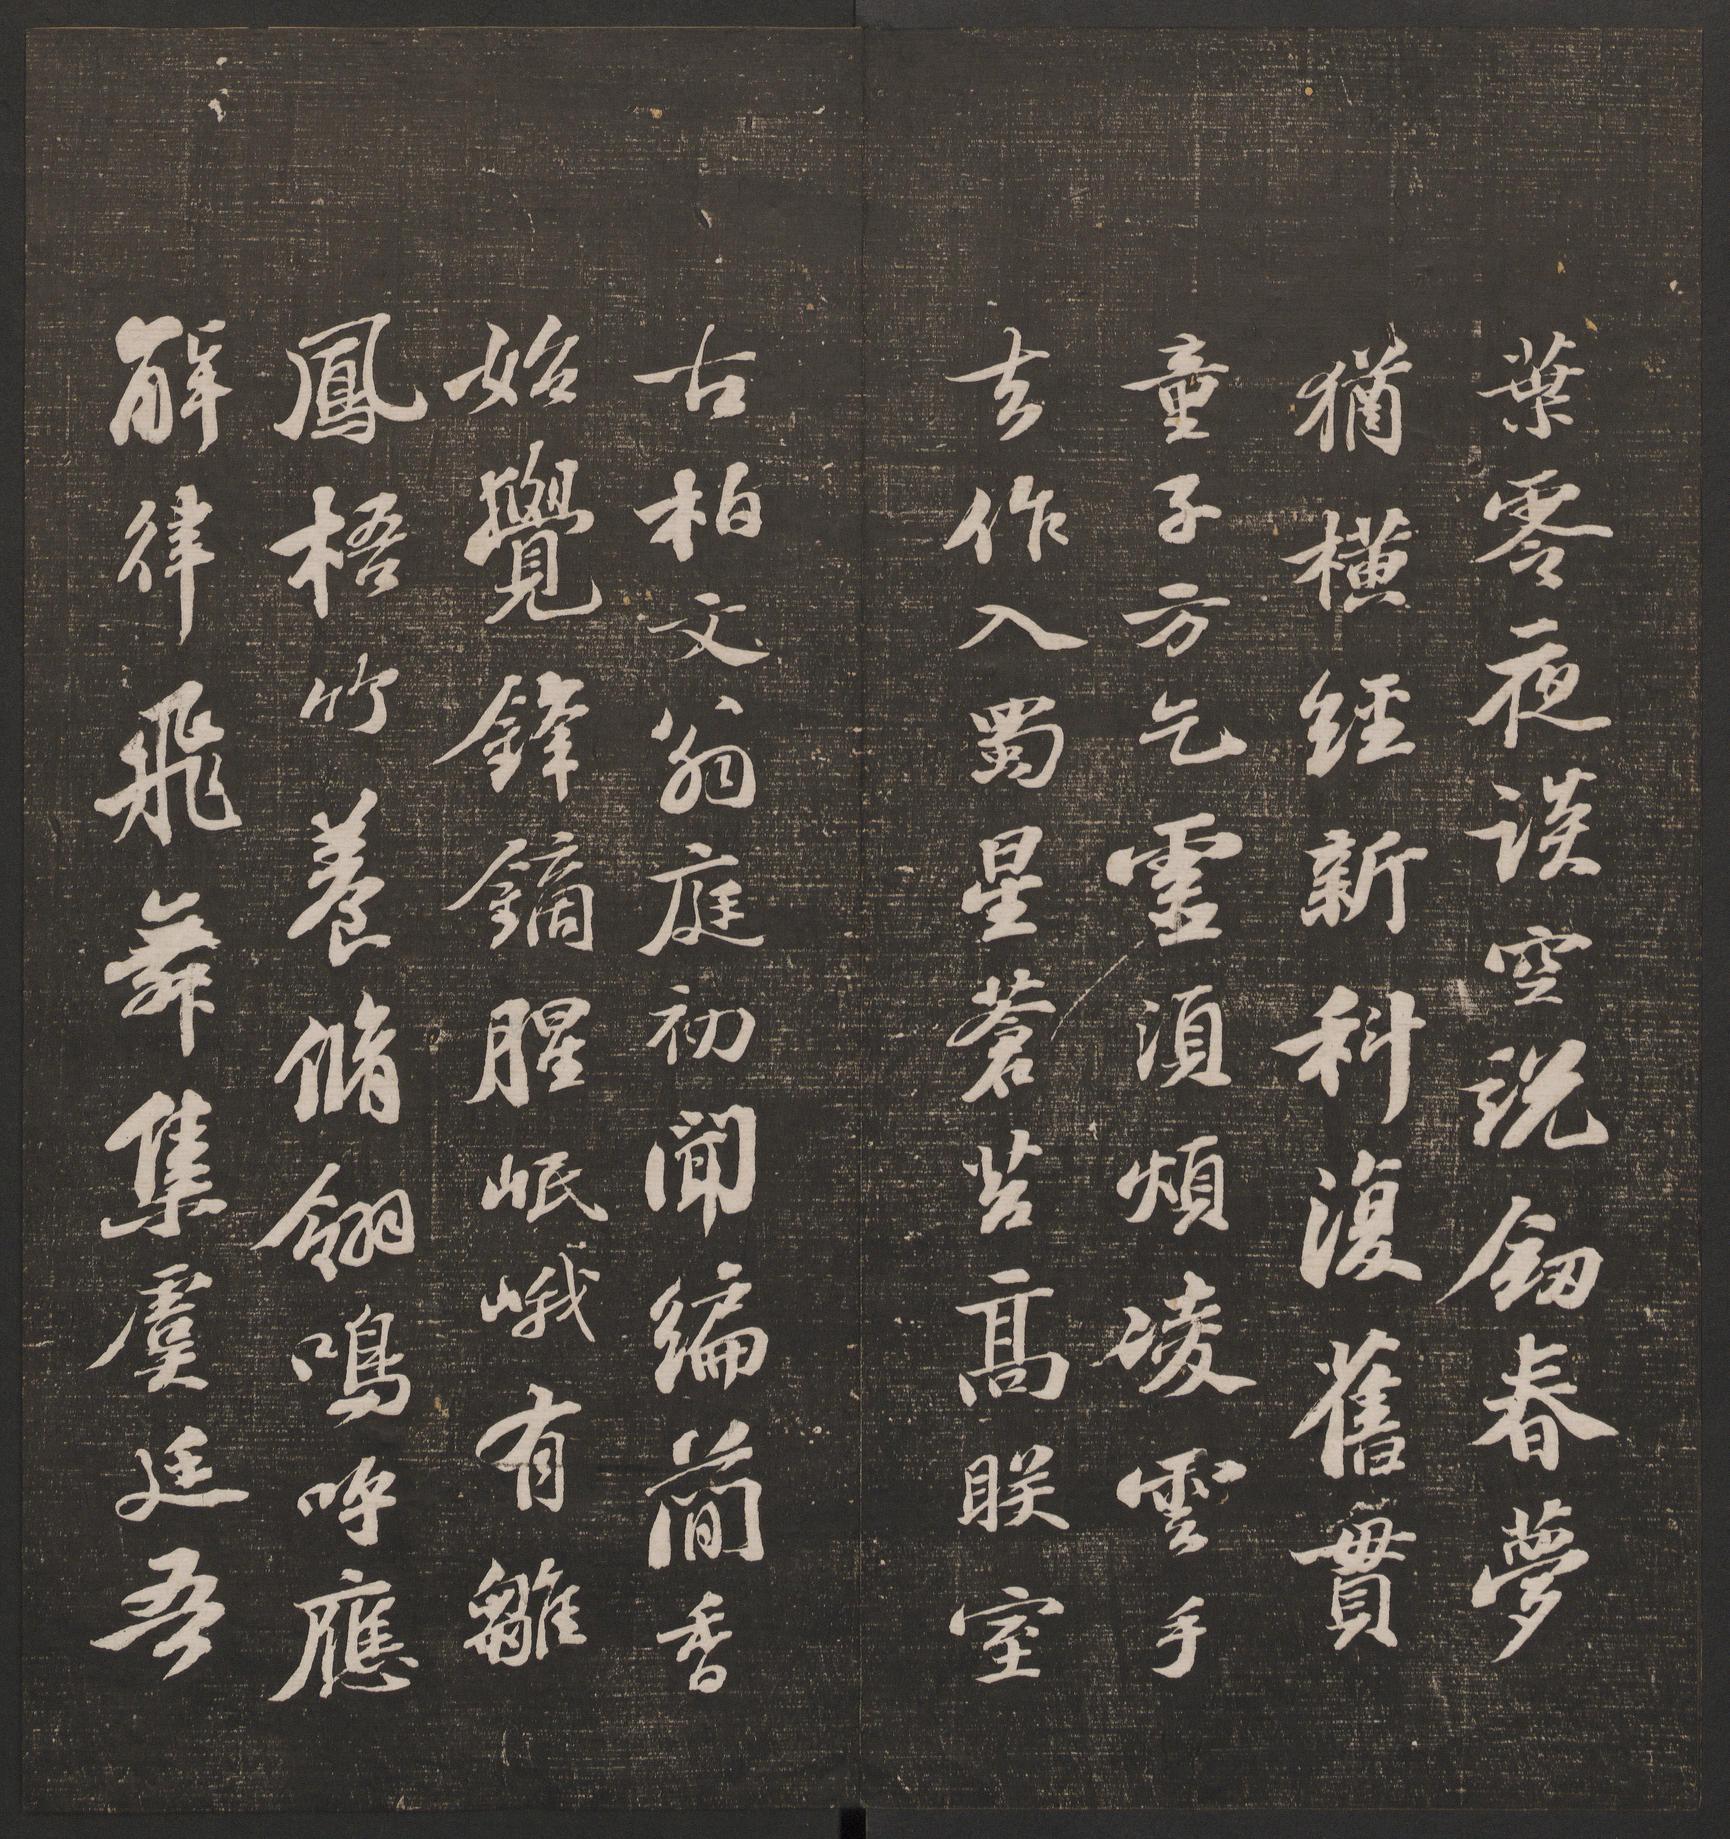 葉零夜談空說劒春夢
猶橫經新科復舊貫
童子方乞靈須煩凌雲手
去作入蜀星蒼苔髙朕室
古柏文翁庭初聞編簡香
始覺鋒鏑腥岷峨有雛
鳳梧竹養脩翎鳴呼應
解律飛舞集虞廷吾